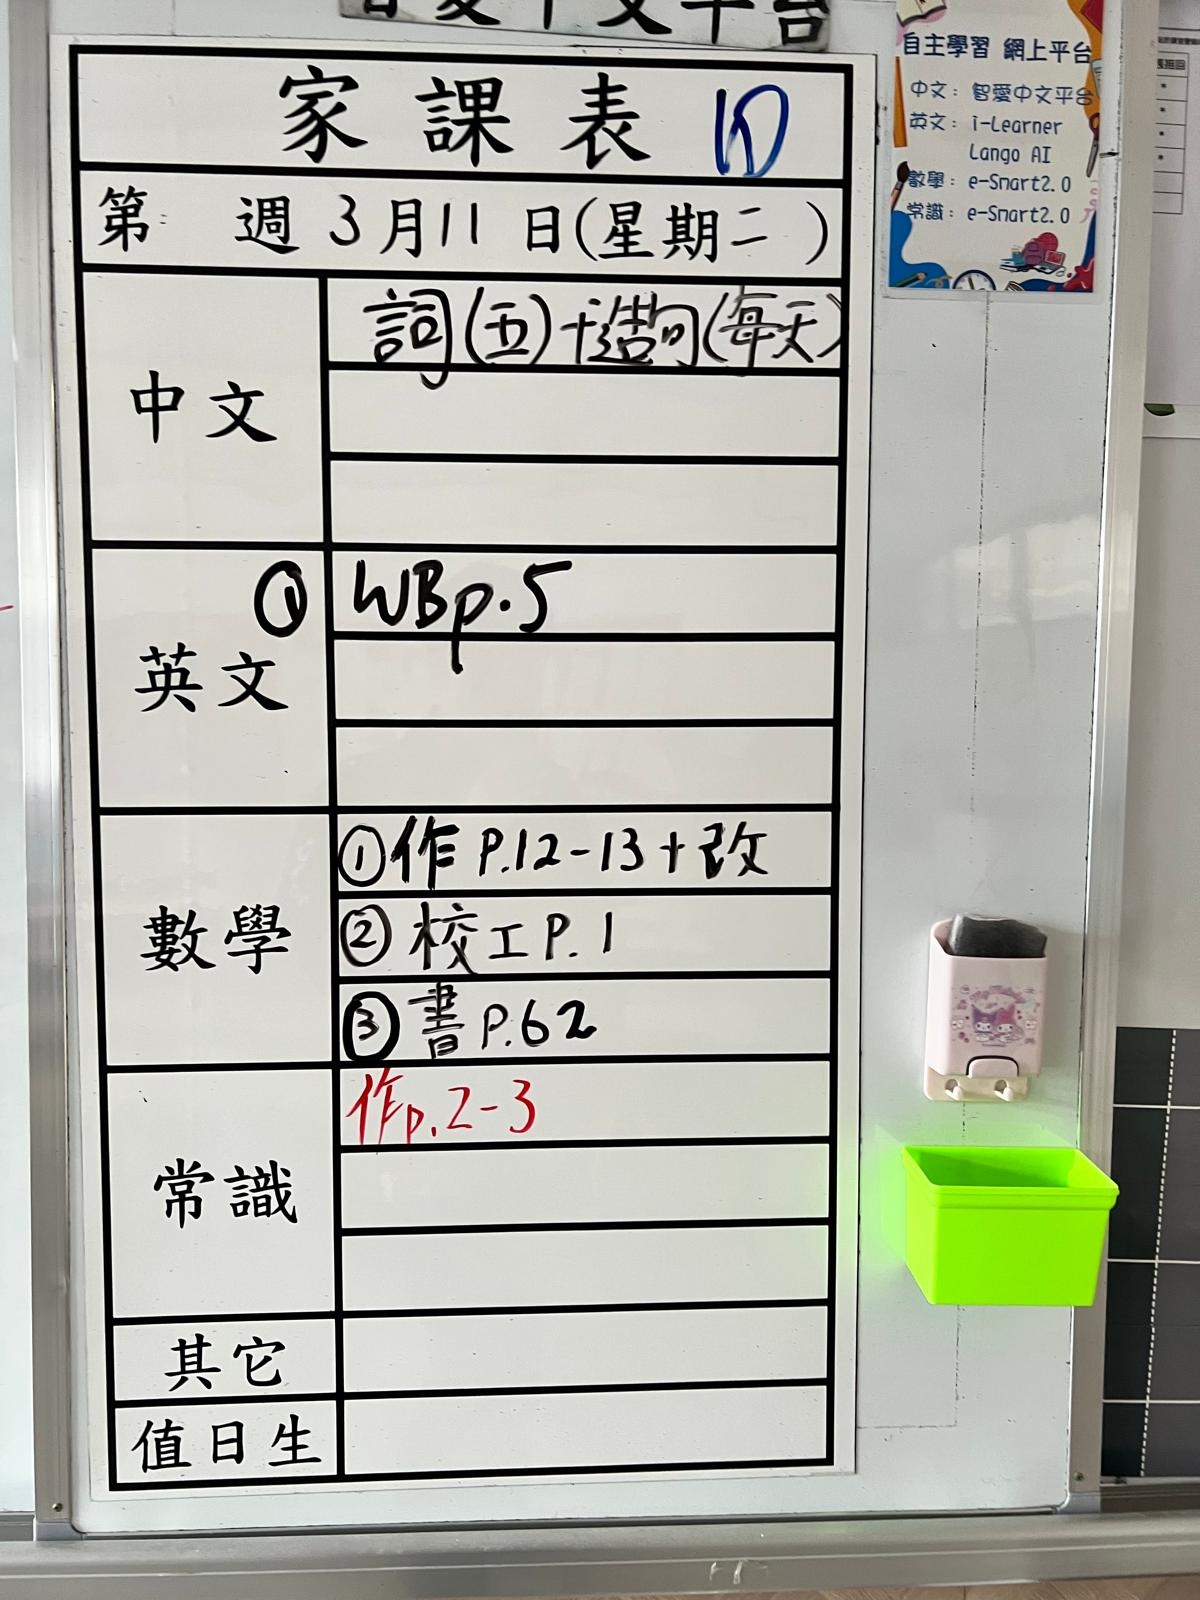 智愛中文平台
家課表 1D
第 週 3月11日(星期二 )
中文
詞(五)+造句(每天)
英文
① WBp.5
數學
①作 P.12-13+改
②校工P.1
③書P.62
常識
作p.2-3
其它
值日生
自主學習 網上平台
中文: 智愛中文平台
英文: i-Learner
Lango AI
數學: e-Smart2.0
常識: e-Smart2.0